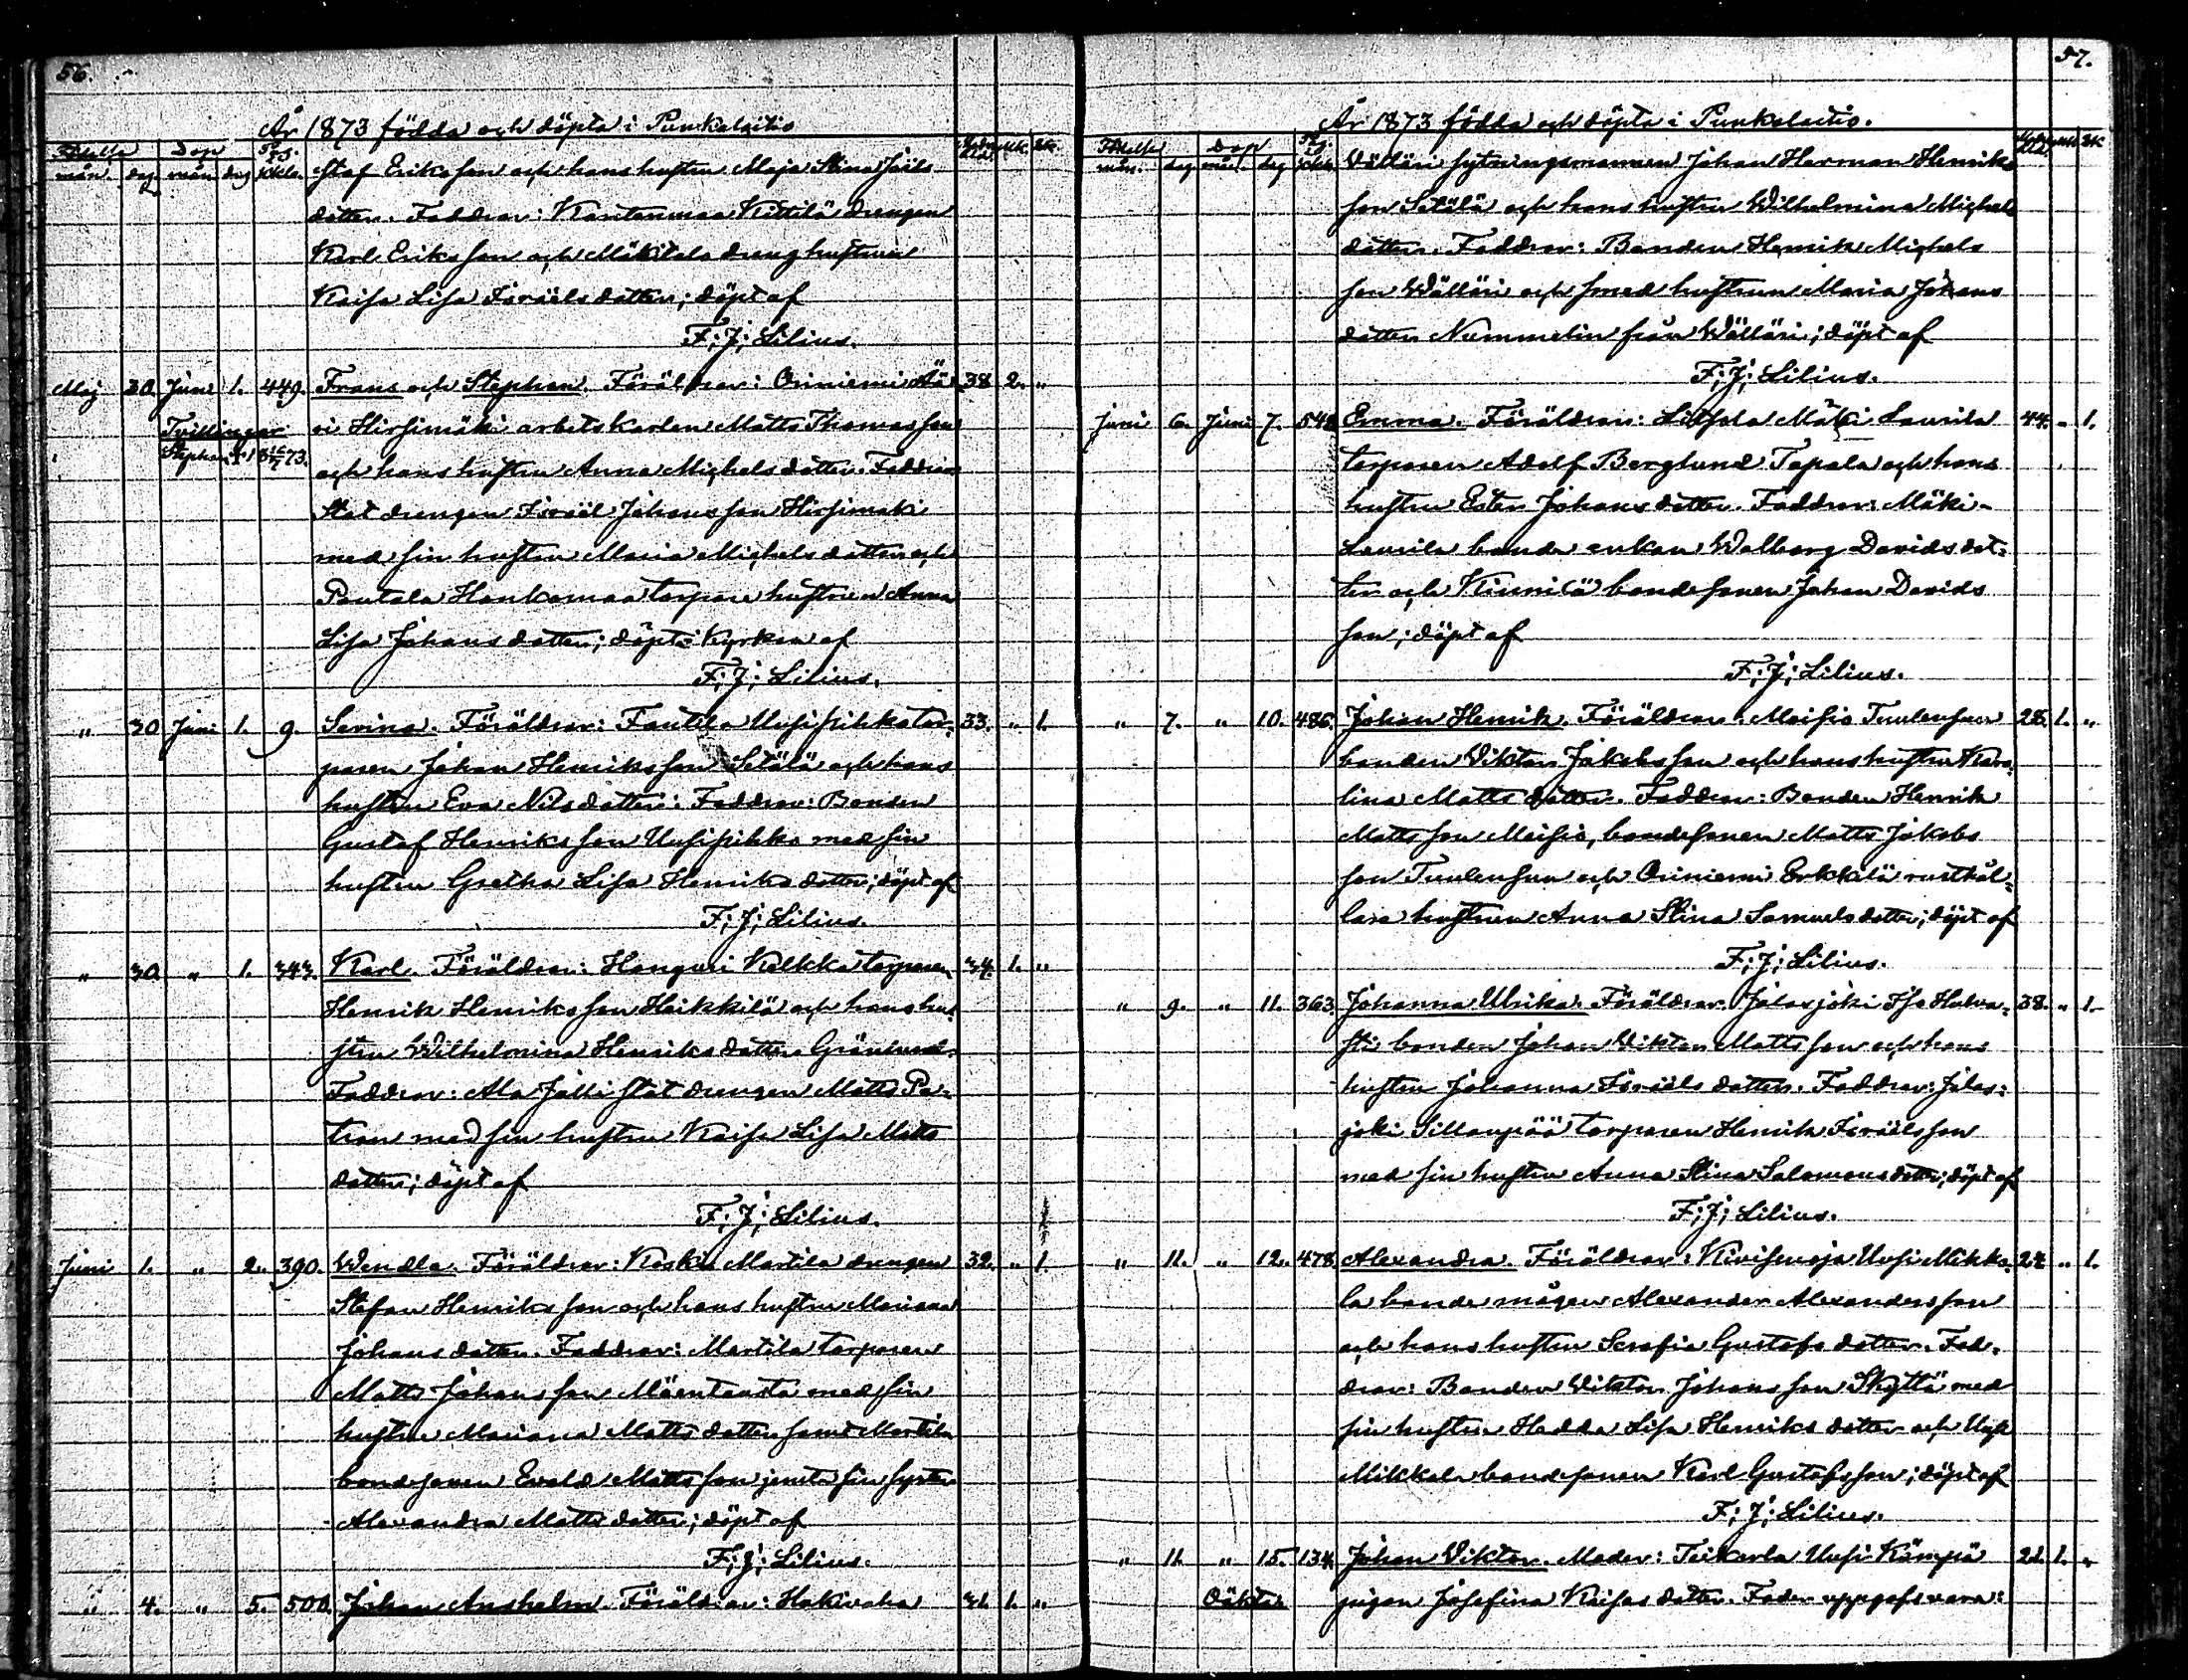 56.
År 1873 födda och döpta i Punkalaitio
Födelse Dop
mån. dag. mån. dag
staf Eriks son och hans hustru Maja Stina Joils
dotter. Faddrar: Kantenmaa Kittilä drengen
Karl Eriks son och Mäkitalo dreng hustrun
Kaisa Lisa Israëls dotter; döpt af
F; J; Lilius.
Maj 30. Juni 1. 449. Frans och Stephan. Föräldrar: Oriniemi 38 2. "
Tvillingar
Stephan
ri Hirsimäki arbetskarlen Matts Thomas son
och hans hustru Anna Michels dotter. Faddrar
Stat drengen Israël Johans son Hirsimäki
med sin hustru Maria Michels dotter och
Pautala Hankamaa torpare hustrun Anna
Lisa Johans dotter; döpt i Kyrkan af
F; J; Lilius.
" 30 Juni 1. 9. Serina. Föräldrar: Fantila Uusipihka tor- 33. " 1.
paren Johan Henriks son Setälä och hans
hustru Eva Nils dotter. Faddrar: Bonden
Gustaf Henriks son Uusipihka med sin
hustru Gretha Lisa Henriks dotter; döpt af
F; J; Lilius.
" 30. " 1. 343. Karl. Föräldrar: Honguri Kulkka torparen 34. 1. "
Henrik Henriks son Heikkilä och hans hu-
stru Wilhelmina Henriks dotter Grönlund.
Faddrar: Ala Jalli stat drengen Matts Pa-
tron med sin hustru Kaisa Lisa Matts
dotter; döpt af
F; J; Lilius.
Juni 1. " 2. 390. Wendla. Föräldrar: Koski Martila drengen 32. " 1.
Stefan Henriks son och hans hustru Mariana
Johans dotter. Faddrar: Martila torparen
Matts Johans son Mäentausta med sin
hustru Mariana Matts dotter samt Martila
bondesonen Evald Matts son jemte sin syster
Alexandra Matts dotter; döpt af
F; J; Lilius.
" 4. " 5. 500. Johan Anshelm. Föräldrar: Hakivaha 31. 1. "
57.
År 1873 födda och döpta i Punkalaitio.
Födelse Dop
mån. dag mån. dag
Wälläri sytningsmannen Johan Herman Henriks
son Setälä och hans hustru Wilhelmina Michels
dotter. Faddrar: Bonden Henrik Michels
son Wälläri och smed hustrun Maria Johans
dotter Nummelin från Wälläri; döpt af
F; J; Lilius.
Juni 6. Juni 7. 548 Emma. Föräldrar: Mäki Laurila 44. " 1.
torparen Adolf Berglund Tapala och hans
hustru Ester Johans dotter. Faddrar: Mäki-
Laurila bonde enkan Walborg Davids dot-
ter och Kinnilä bondesonen Johan Davids
son; döpt af
F; J; Lilius.
" 7. " 10. 486. Johan Henrik. Föräldrar: Moisio Tuulensuu 28. 1. "
bonden Viktor Jakobs son och hans hustru Karo-
lina Matts dotter. Faddrar: Bonden Henrik
Matts son Moisio, bondesonen Matts Jakobs
son Tuulensuu och Oriniemi Erkkilä rusthål-
lare hustrun Anna Stina Samuels dotter; döpt af
F; J; Lilius.
" 9. " 11. 363 Johanna Ulrika. Föräldrar: Jalasjoki Iso Halva- 38. " 1.
sti bonden Johan Viktor Matts son och hans
hustru Johanna Israëls dotter. Faddrar: Jalas-
joki Sillanpää torparen Henrik Israëls son
med sin hustru Anna Stina Salomons dotter; döpt af
F; J; Lilius.
" 11. " 12. 478 Alexandra. Föräldrar: Kivisenoja Uusi Mikko- 24 " 1.
la bonde mågen Alexander Alexanders son
och hans hustru Serafia Gustafs dotter. Fad-
drar: Bonden Viktor Johans son Skyttä med
sin hustru Hedda Lisa Henriks dotter och Uusi
Mikkola bondesonen Karl Gustafs son; döpt af
F; J; Lilius.
" 11. " 15. 134. Johan Viktor. Moder: Teikarla Uusi Kämpä 21. 1. "
Oäkta
pigan Josefina Kaisas dotter. Fader uppgafs vara: